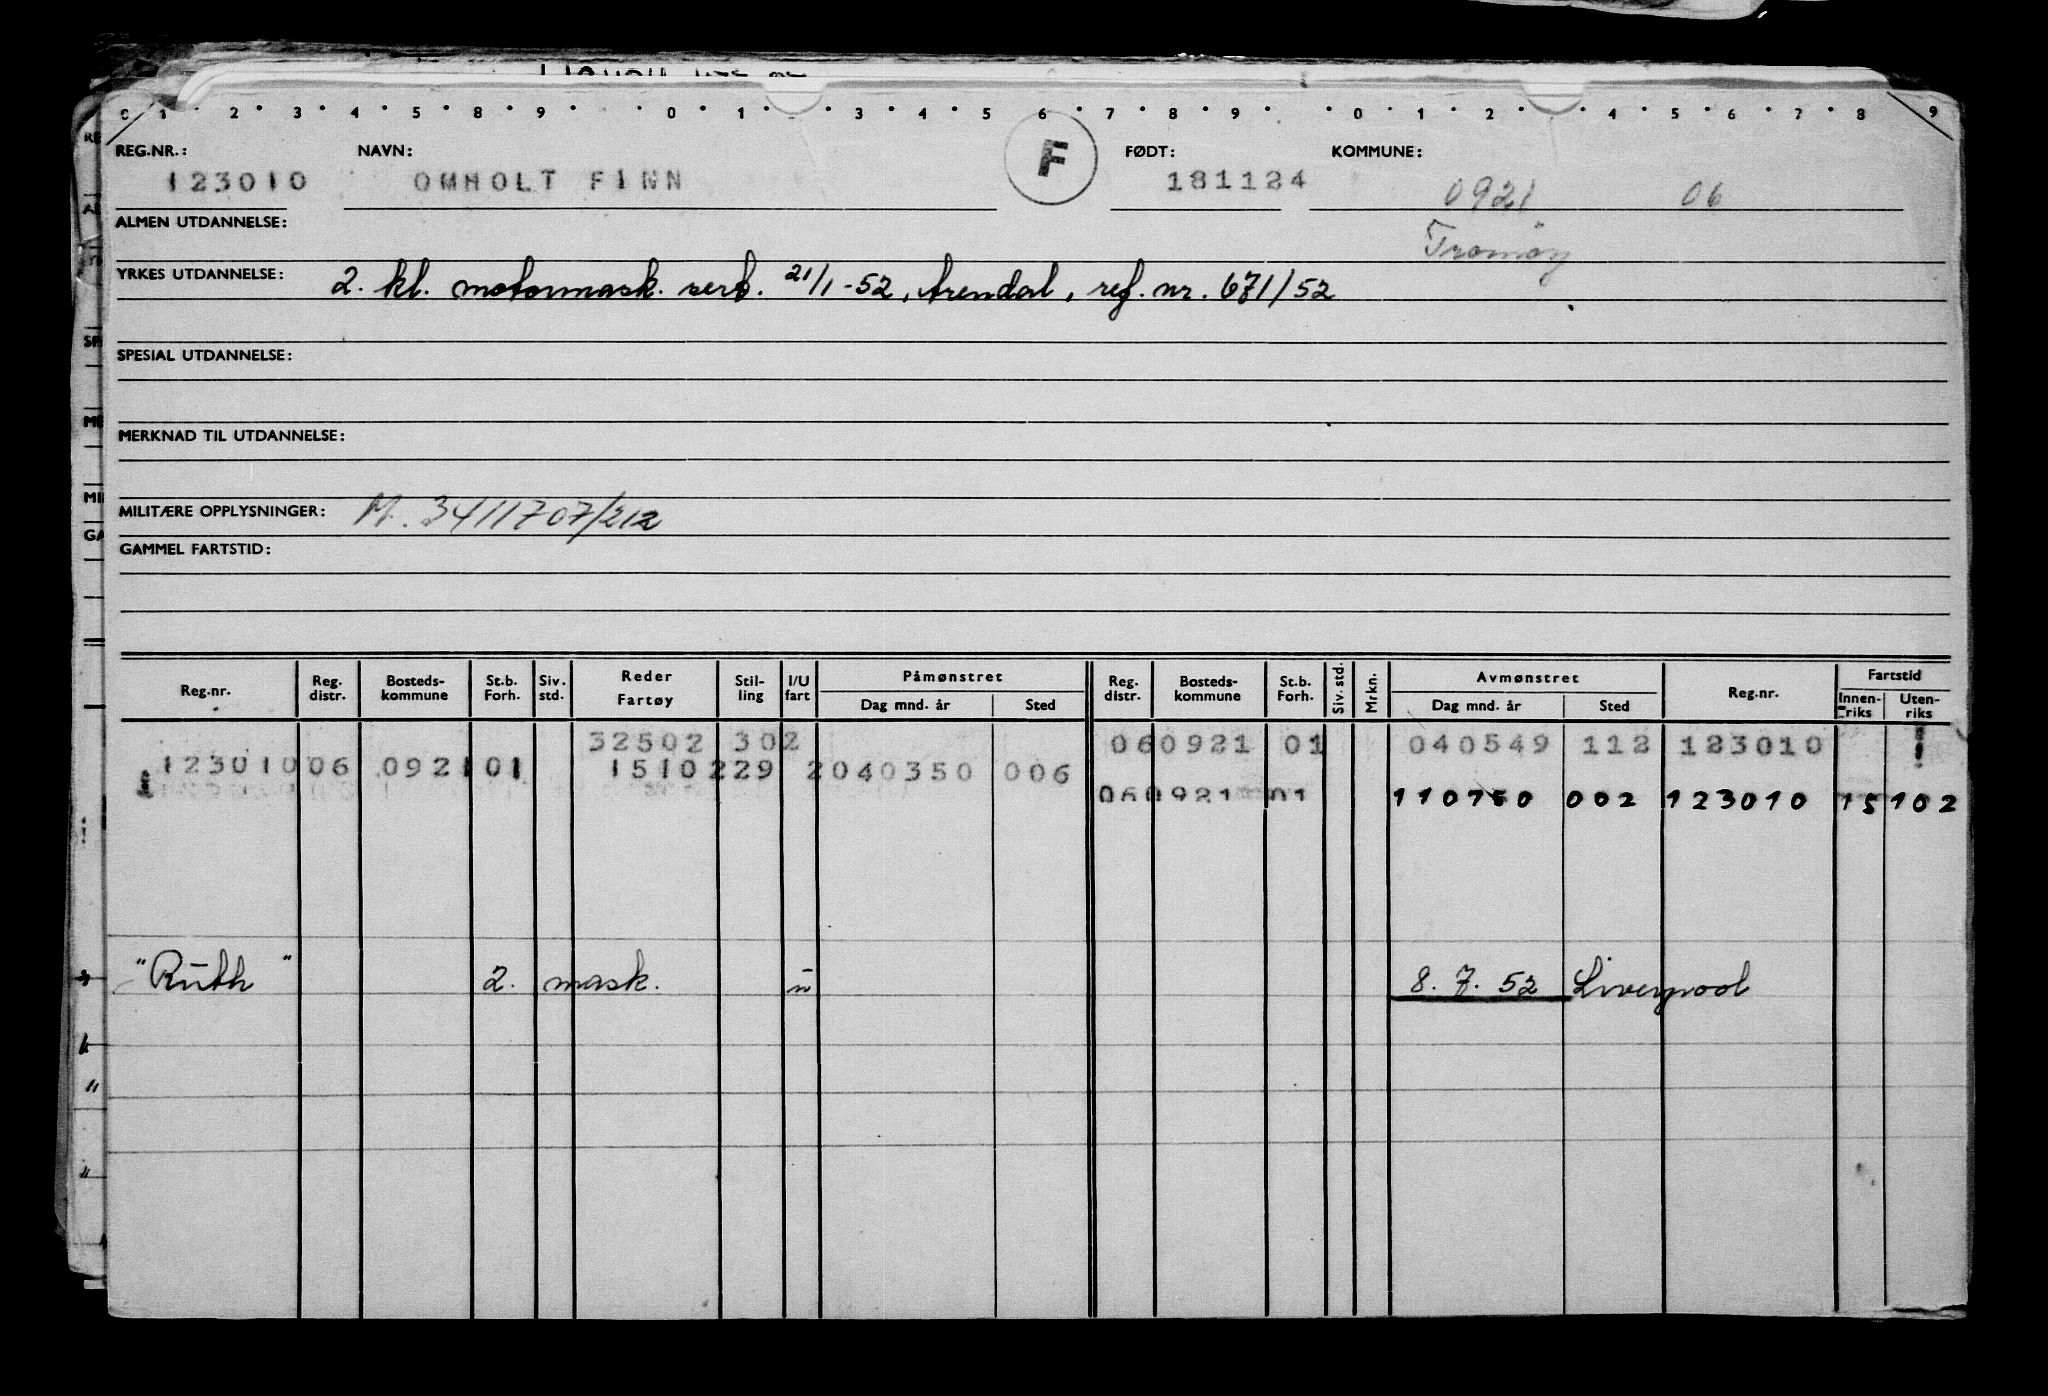 0 1 2 3 4 5 8 9 0 1 3 4 5 6 7 8 9 0 1 2 4 5 6 7 8 9
REG.NR.: NAVN: F FØDT: KOMMUNE:
123010 OMHOLT FINN 181124 0921 06
ALMEN UTDANNELSE: Tromöy
YRKES UTDANNELSE: 2. kl. motormask. sert. 21/1-52, Arendal, ref. nr. 671/52
SPESIAL UTDANNELSE:
MERKNAD TIL UTDANNELSE:
MILITÆRE OPPLYSNINGER: M. 3411707/212
GAMMEL FARTSTID:
Reg.nr. Reg. distr. Bosteds-kommune St.b. Forh. Siv. std. Reder Fartøy Stil-ling I/U fart Påmønstret Dag mnd. år Sted Reg. distr. Bosteds-kommune St.b. Forh. Siv. std. Mrkn. Avmønstret Dag mnd. år Sted Reg.nr. Fartstid Innen-riks Uten-riks
32502 302 06 0921 01 040549 112 123010
123010 06 0921 01 1510229 2 040350 006
06 0921 01 110750 002 123010 15 102
"Ruth" 2. mask. u 8. 7. 52 Liverpool